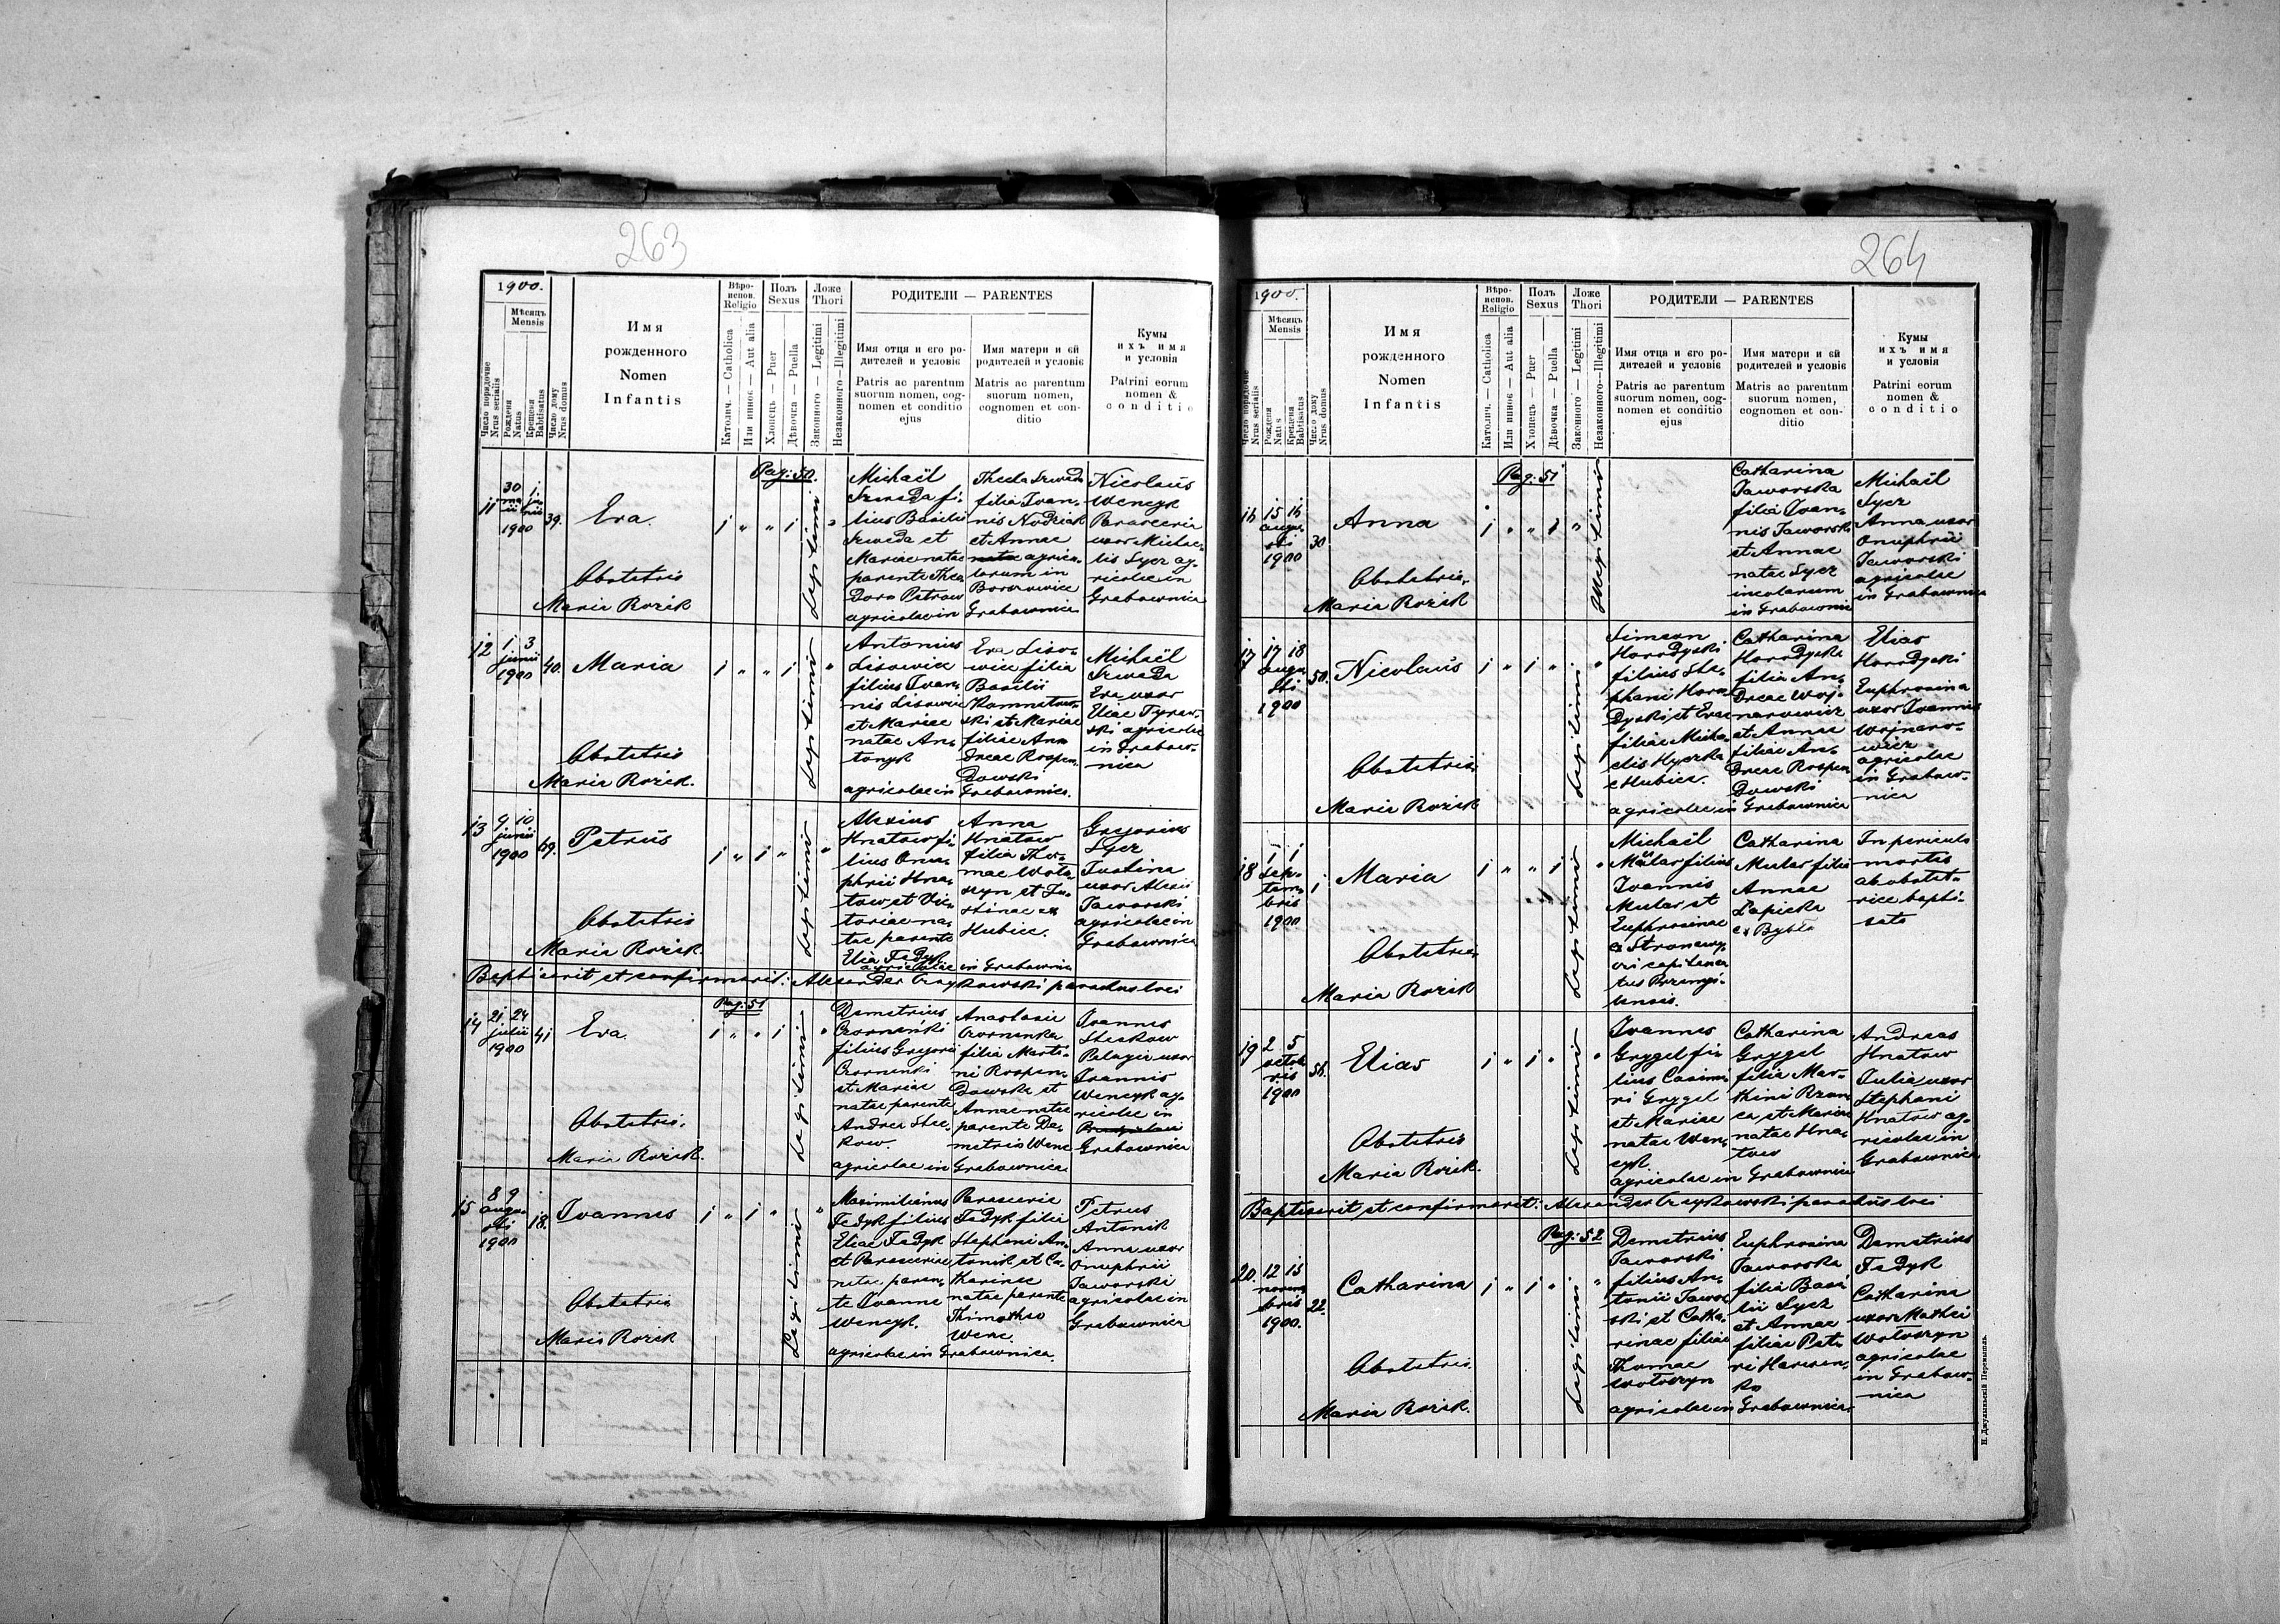 263
1900.
Число порядочне
Nrus serialis
Мѣсяцъ
Mensis
Рождена
Natus
Крещена
Babtisatus
Число дому
Nrus domus
Имя
рожденного
Nomen
Infantis
Вѣро-
испов.
Religio
Католич. — Catholica
Или инное — Aut alia
Полъ
Sexus
Хлопець — Puer
Дѣвочка — Puella
Ложе
Thori
Законного — Legitimi
Незаконного — Illegitimi
РОДИТЕЛИ — PARENTES
Имя отця и его ро-
дителей и условіє
Patris ac parentum
suorum nomen, cog-
nomen et conditio
ejus
Имя матери и єй
родителей и условіє
Matris ac parentum
suorum nomen,
cognomen et con-
ditio
Кумы
ихъ имя
и условія
Patrini eorum
nomen &
conditio
Pag: 50.
11
30 1
maii junii
1900
39.
Eva.
Obstetrix
Maria Rozik
Legitimi
Michaël
Szweda fi-
lius Basilii
Szweda et
Mariae natae
parente Theo
doro Petrow
agricolae in
Thecla Szweda
filia Ioan-
nis Nodziak
et Annae
agrico-
larum in
Borownica
Grabownica
Nicolaus
Wencyk
Parascevia
uxor Michae-
lis Sycz ag-
ricolae in
Grabownica
12
1 3
junii
1900
40.
Maria
Obstetrix
Maria Rozik.
Legitimi
Antonius
Lisowicz
filius Ioan-
nis Lisowicz
et Mariae
natae An-
tonyk
agricolae in
Eva Liso-
wicz filia
Basilii
et Mariae
filiae An-
dreae Rospen-
dowski
Grabownica.
Michaël
Szweda
Eva uxor
Eliae Tyraw-
ski agricolae
in Grabow-
nica
13
9 10
junii
1900
69.
Petrus
Obstetrix
Maria Rozik.
Legitimi
Alexius
Hnatow fi-
lius Onu-
phrii Hna-
tow et Vic-
toriae na-
tae parente
Elia Fedyk
agricolae in Grabownica
Anna
Hnatow
filia Tho-
mae Woto-
szyn et Ju-
stinae ex
Hubice.
Gregorius
Sycz
Justina
uxor Alexii
Jaworski
agricolae in
Grabownica
Baptisavit et confirmavit: Alexander Czyżowski parochus loci
Pag: 51
14
21 24
julii
1900
41
Eva.
Obstetrix.
Maria Rozik.
Legitimi
Demetrius
Czornenki
filius Gregorii
Czornenki
et Mariae
natae parente
Andrea Stec-
kow.
agricolae in Grabownica
Anastasia
Czornenka
filia Marti-
ni Rospen-
dowska et
Annae natae
parente De-
metrio Wenc
Ioannes
Steckow
Pelagia uxor
Ioannis
Wencyk ag-
ricolae in
Grabownica
15
8 9
augu-
sti
1900
18.
Ioannes
Obstetrix
Maria Rozik
Legitimi
Maximilianus
Fedyk filius
Eliae Fedyk
et Parasceviae
natae paren-
te Ioanne
Wencyk.
agricolae in Grabownica.
Parascevia
Fedyk filia
Stephani An-
tonik et Ca-
tharinae
natae parente
Thimotheo
Wenc.
Petrus
Antonik
Anna uxor
Onuphrii
Jaworski
agricolae in
Grabownica
264
1900.
Число порядочне
Nrus serialis
Мѣсяцъ
Mensis
Рождена
Natus
Крещена
Babtisatus
Число дому
Nrus domus
Имя
рожденного
Nomen
Infantis
Вѣро-
испов.
Religio
Католич. — Catholica
Или инное — Aut alia
Полъ
Sexus
Хлопець — Puer
Дѣвочка — Puella
Ложе
Thori
Законного — Legitimi
Незаконного — Illegitimi
РОДИТЕЛИ — PARENTES
Имя отця и его ро-
дителей и условіє
Patris ac parentum
suorum nomen, cog-
nomen et conditio
ejus
Имя матери и єй
родителей и условіє
Matris ac parentum
suorum nomen,
cognomen et con-
ditio
Кумы
ихъ имя
и условія
Patrini eorum
nomen &
conditio
Pag: 51
16
15 16
augu-
sti
1900
30
Anna
Obstetrix.
Maria Rozik
Illegitimi
Catharina
Jaworska
filia Ioan-
nis Jaworski
et Annae
natae Sycz
incolarum
in Grabownica
Michaël
Sycz
Anna uxor
Onuphrii
Jaworski
agricolae
in Grabownica
17
17 18
augu-
sti
1900
50.
Nicolaus
Obstetrix
Maria Rozik
Legitimi
Simeon
Horodyski
filius Ste-
phani Horo-
dyski et Evae
filiae Micha-
elis Hyczka
e Hubice.
agricolae in Grabownica
Catharina
Horodyska
filia An-
dreae Woj-
narowicz
et Annae
filiae An-
dreae Rospen-
dowski
Elias
Horodyski
Euphrosina
uxor Ioannis
Wojnaro-
wicz
agricolae
in Grabow-
nica
18
1 1
septem-
bris
1900
1
Maria
Obstetrix
Maria Rozik
Legitimi
Michaël
Mular filius
Ioannis
Mular et
Euphrosinae
Catharina
Mular filia
Annae
Łapicka
In periculo
mortis
ab obstet-
rice bapti-
sata
19
2 5
octob-
ris
1900
56.
Elias
Obstetrix
Maria Rozik.
Legitimi
Ioannes
Grygel fi-
lius Casimi-
ri Grygel
et Mariae
natae Wen-
cyk.
agricolae in Grabownica
Catharina
Grygel
filia Mar-
et Mariae
natae Hna-
tow
Andreas
Hnatow
Julia uxor
Stephani
Hnatow ag-
ricolae in
Grabownica
Baptisavit et confirmavit: Alexander Czyżowski parochus loci
Pag: 52
20.
12 13
novem-
bris
1900.
22.
Catharina
Obstetrix.
Maria Rozik.
Legitimi
Demetrius
Jaworski
filius An-
tonii Jawor-
ski et Catha-
rinae filiae
Thomae
Wotoszyn
agricolae in Grabownica
Euphrosina
Jaworska
filia Basi-
lii Sycz
et Annae
filiae Pet-
ri
Demetrius
Fedyk
Catharina
uxor Mathei
Wotoszyn
agricolae
in Grabow-
nica
Н. Джулыньскій Перемышль.